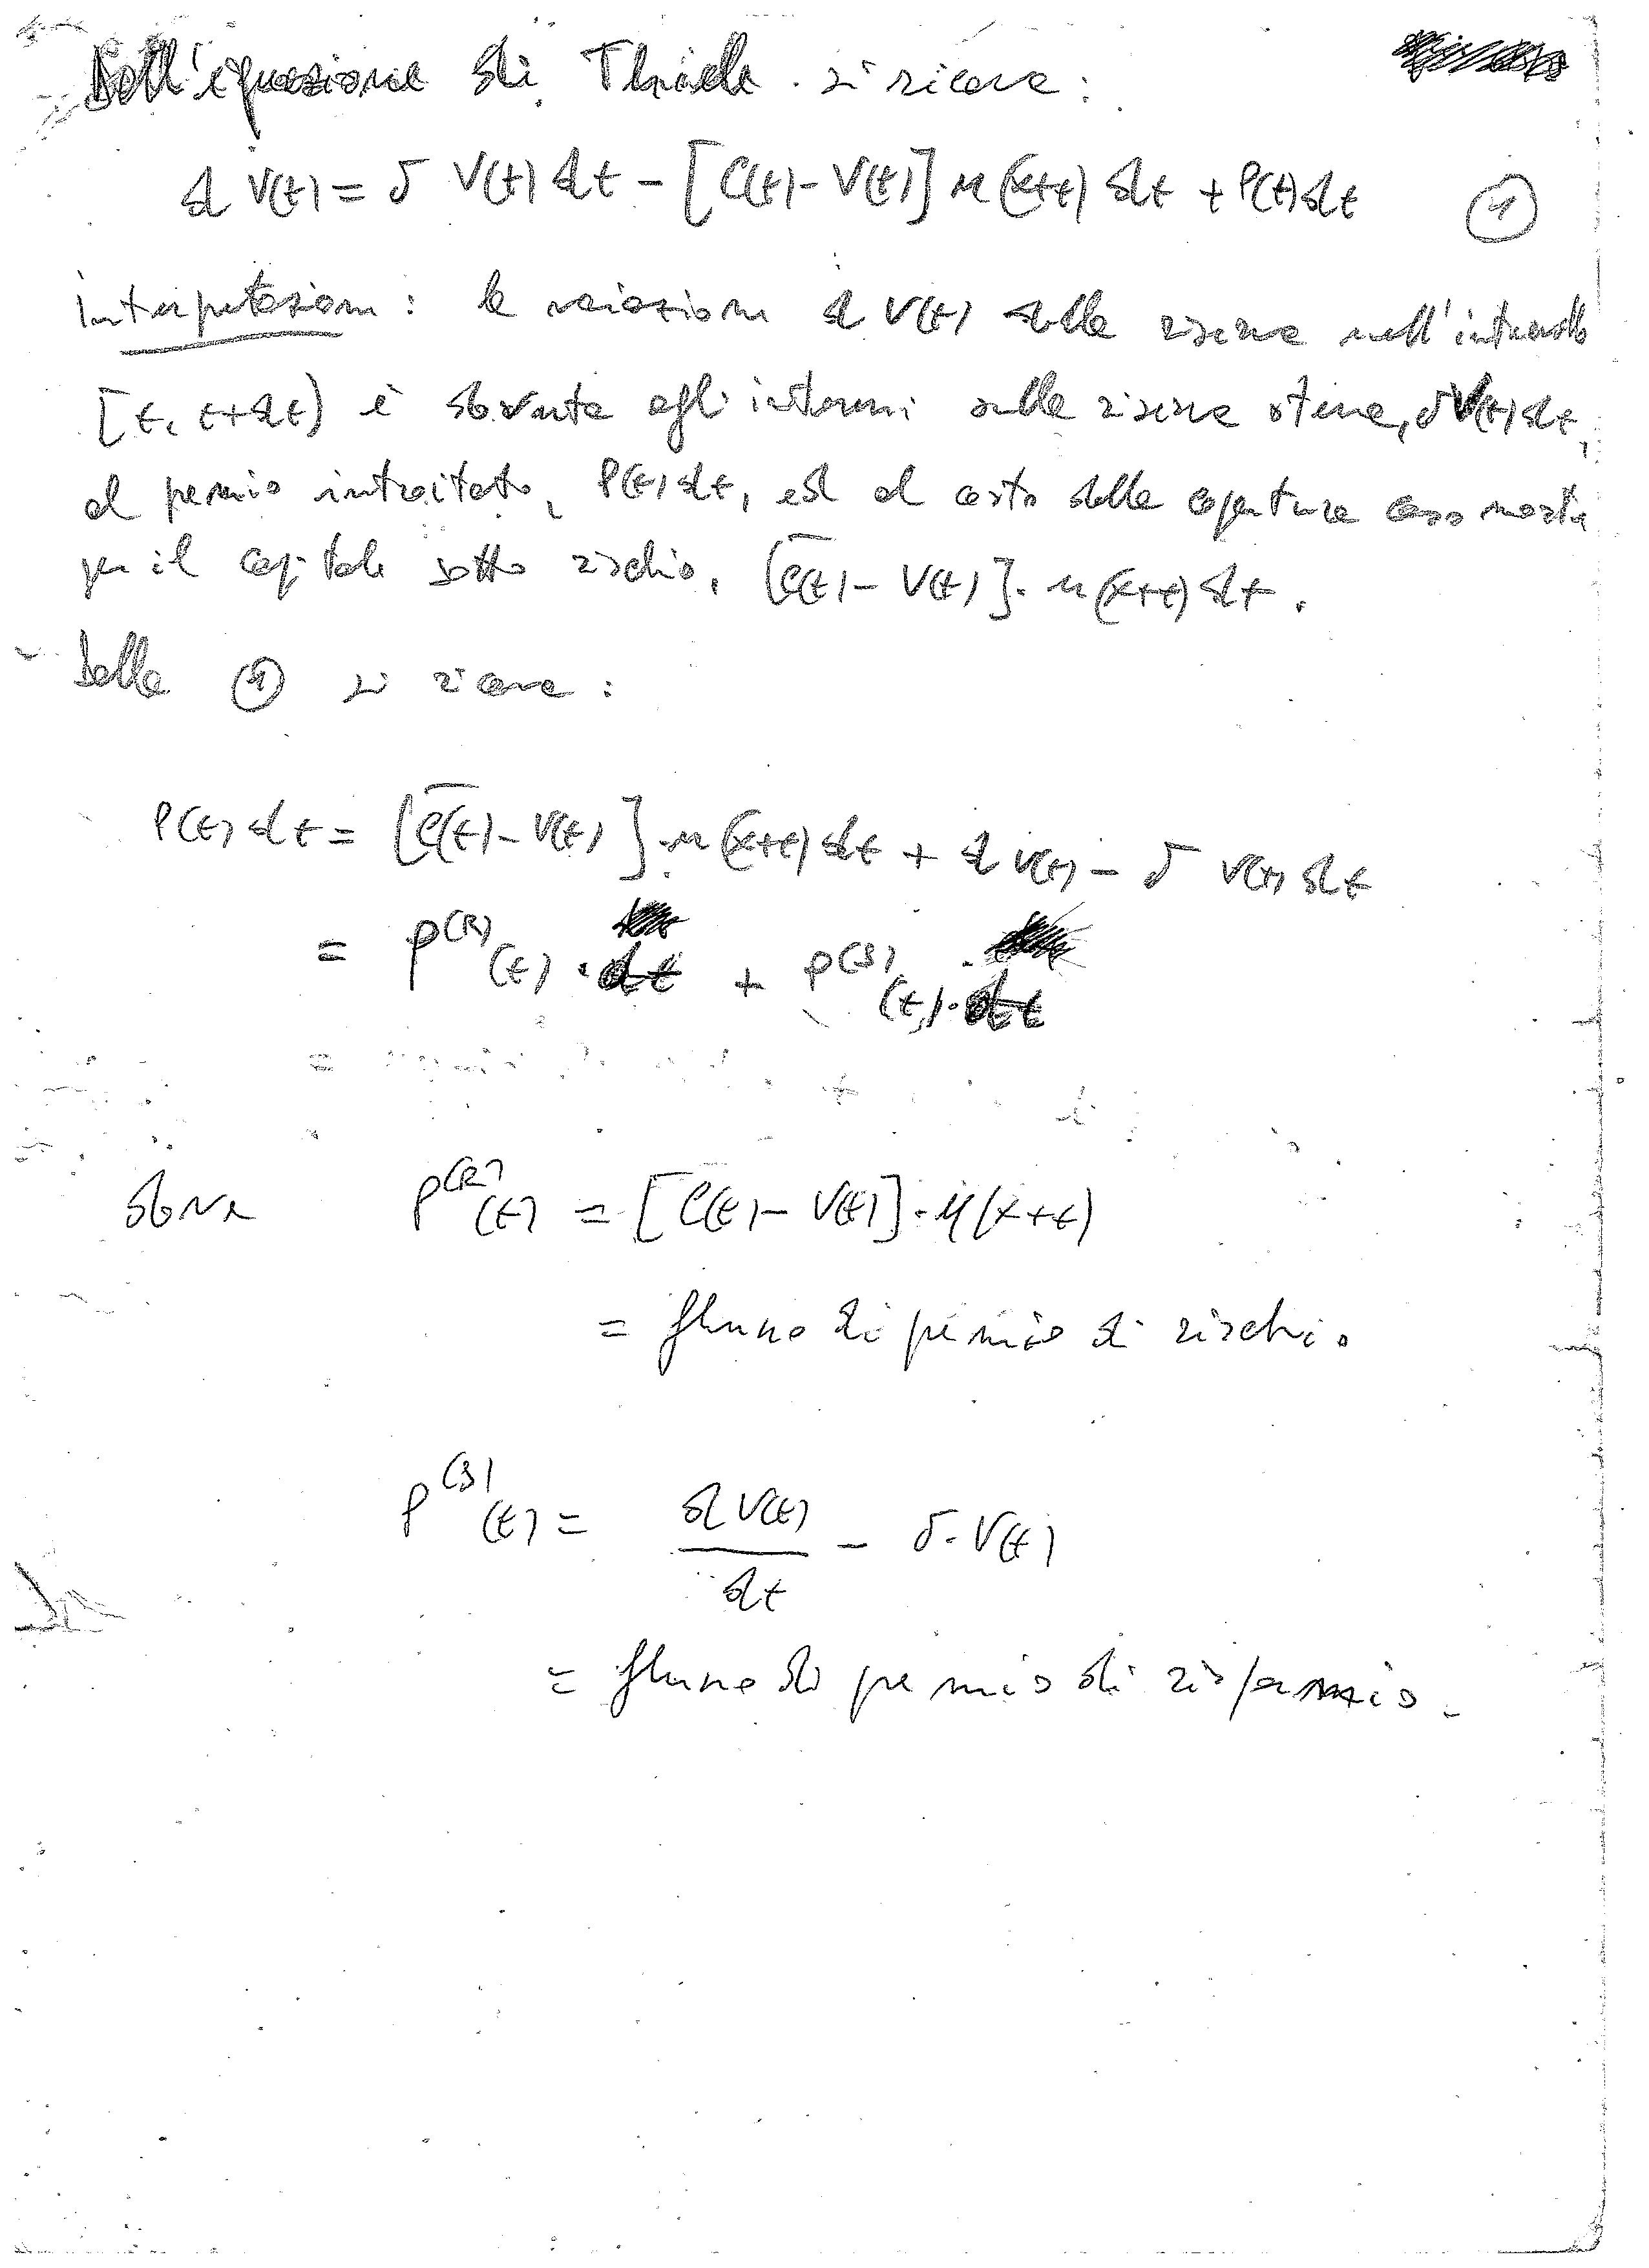 Dall'equazione di Thiele si ricava:
d V(t) = δ V(t) dt - [C(t) - V(t)] μ(x+t) dt + P(t) dt ①
Interpretazione: la variazione d V(t) della riserva nell'intervallo
[t, t+dt) è dovuta agli interessi sulla riserva stessa, δV(t) dt,
al premio introitato, P(t) dt, ed al costo della copertura caso morte
per il capitale sotto rischio, [C(t) - V(t)]·μ(x+t) dt.
Dalla ① si ricava:
P(t) dt = [C(t) - V(t)]·μ(x+t) dt + d V(t) - δ V(t) dt
= P^(R)(t)·dt + P^(S)(t)·dt
dove P^(R)(t) = [C(t) - V(t)]·μ(x+t)
= flusso di premio di rischio
P^(S)(t) = dV(t)/dt - δ·V(t)
= flusso di premio di risparmio.